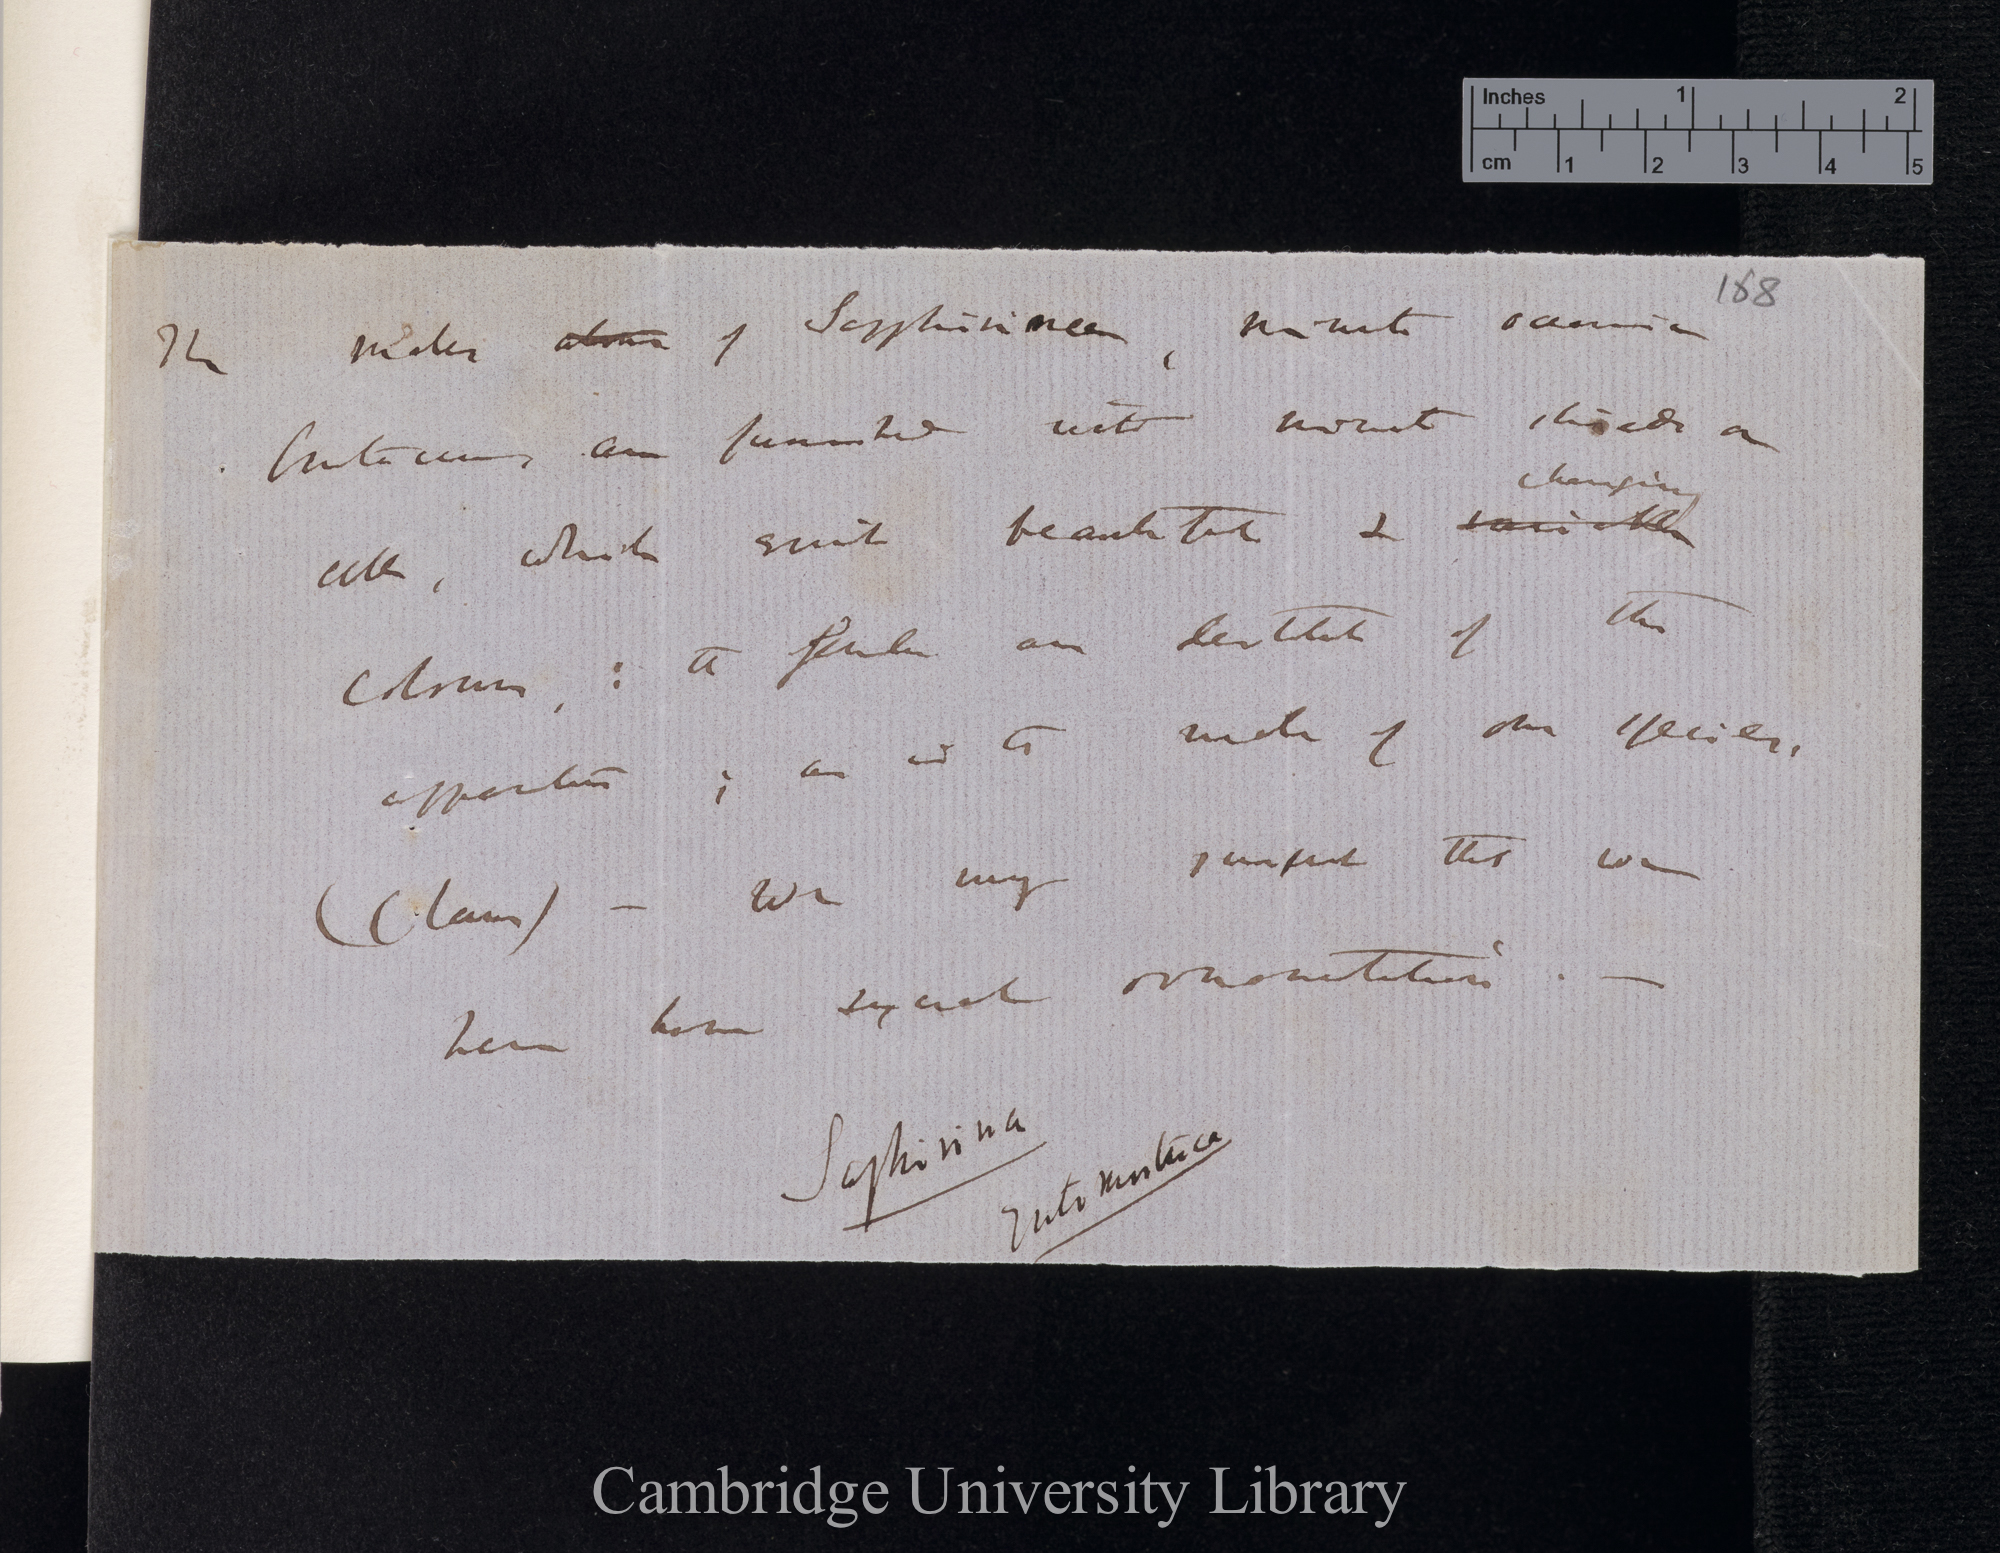 Inches 1 2
cm 1 2 3 4 5
188
The males alone of Sapphirinea, minute oceanic
Crustaceans are furnished with minute shields or
cells, which emit beautiful & variable changing
colours,: the females are destitute of this
apparatus; as is the male of one species.
(Claus) — We may suspect that we
here have sexual ornamentation. —
Saphirina
Entomostraca
Cambridge University Library